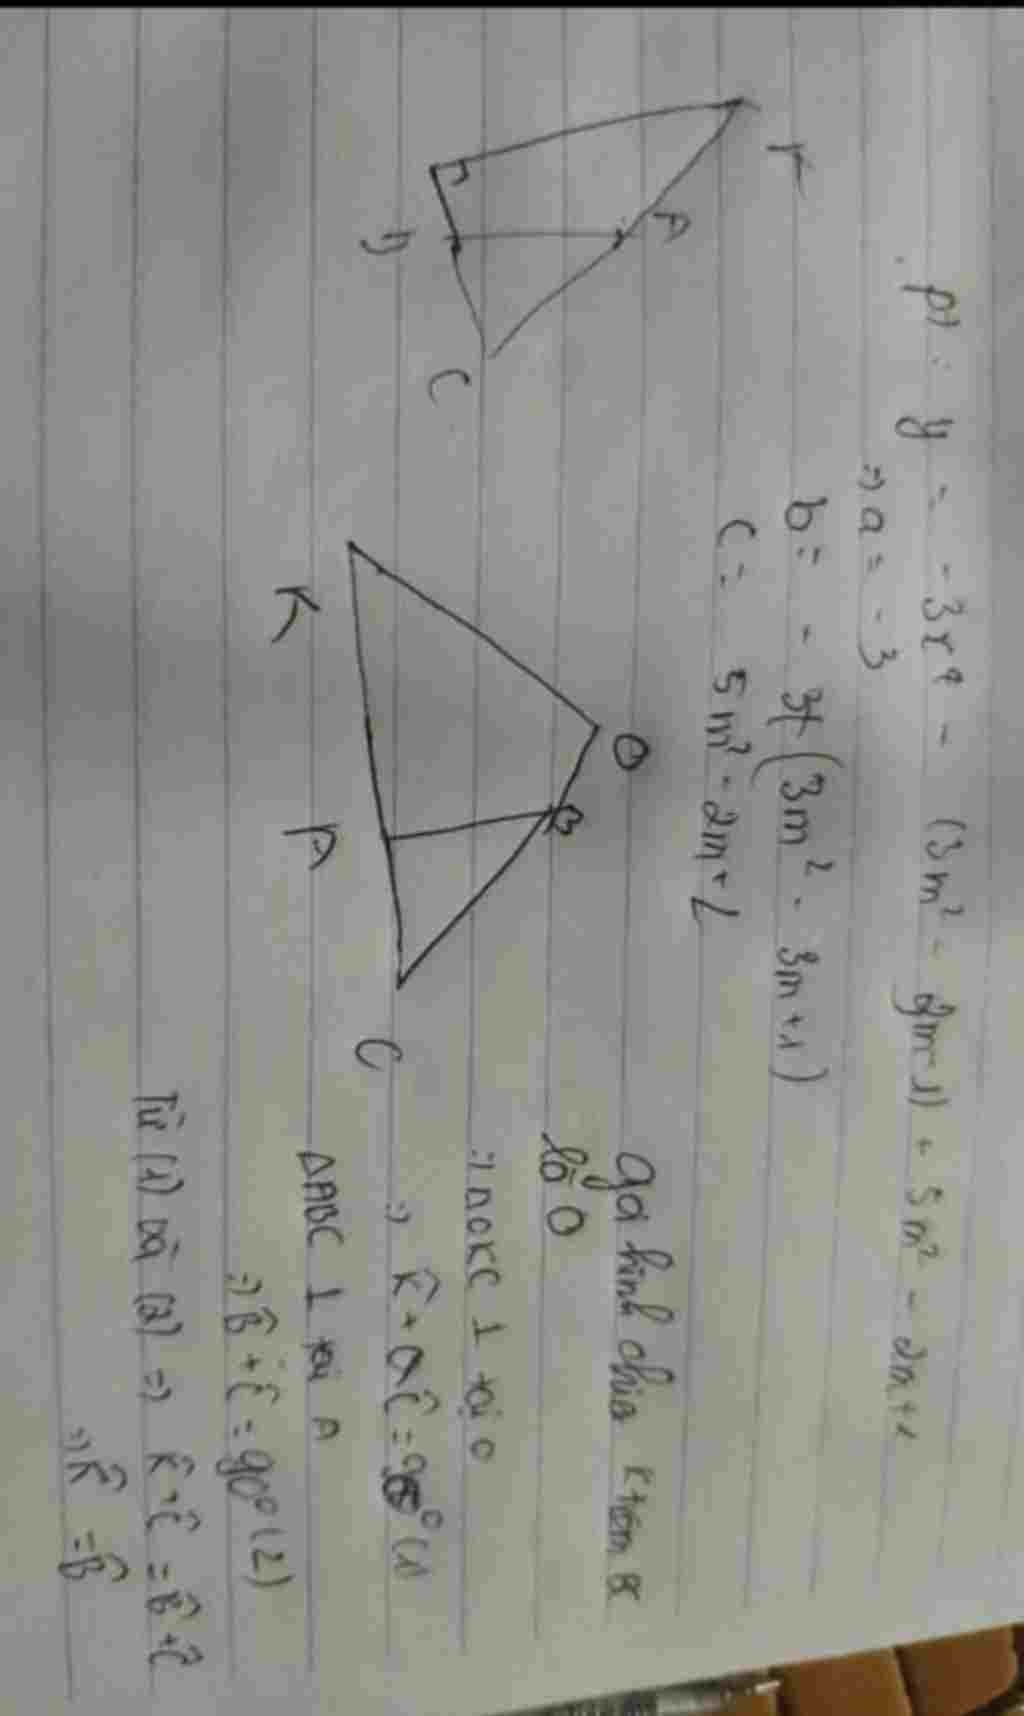 pt: y = -3x² - (3m² - 2m-1) + 5m² - 2m+1
=> a = -3
b = - 3(3m² - 3m+1)
C = 5m² - 2m+1
K
A
B
C
O
B
K
A
C
gọi hình chiếu K trên BC
là O
=> ΔOKC ⊥ tại O
=> K̂ + Ĉ = 90° (1)
ΔABC ⊥ tại A
=> B̂ + Ĉ = 90° (2)
Từ (1) và (2) => K̂ + Ĉ = B̂ + Ĉ
=> K̂ = B̂